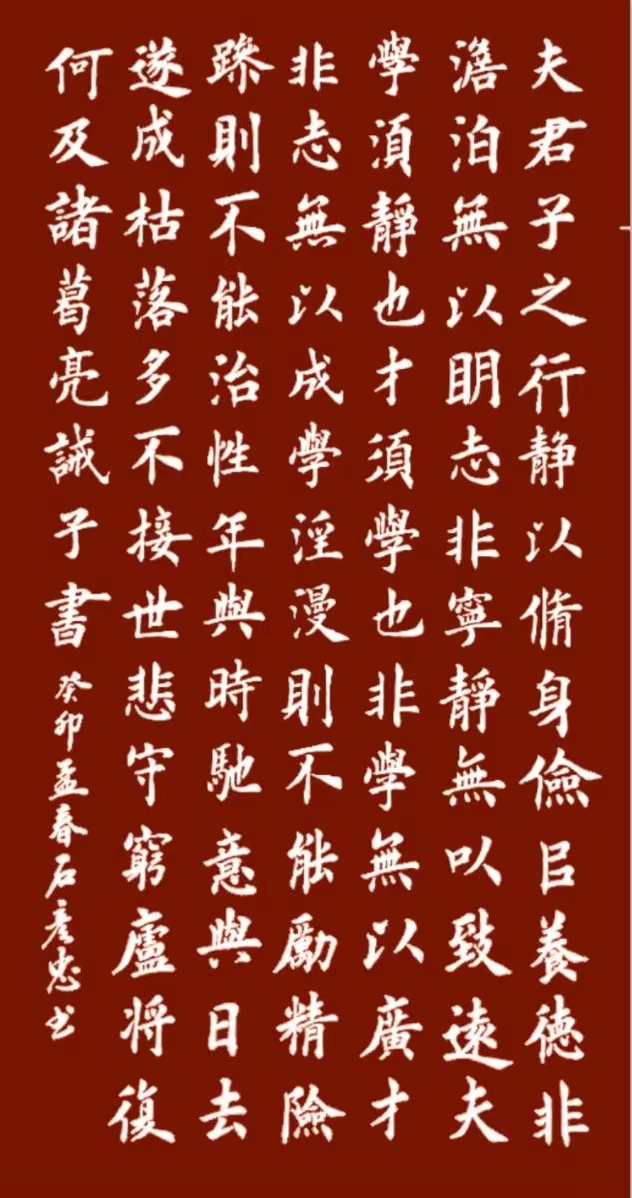 夫君子之行静以脩身儉㠯養德非
澹泊無以眀志非寧靜無以致遠夫
學須靜也才須學也非學無以廣才
非志無以成學淫漫則不能勵精險
躁則不能治性年與時馳意與日去
遂成枯落多不接世悲守窮廬将復
何及諸葛亮誡子書
癸卯孟春石彦忠书